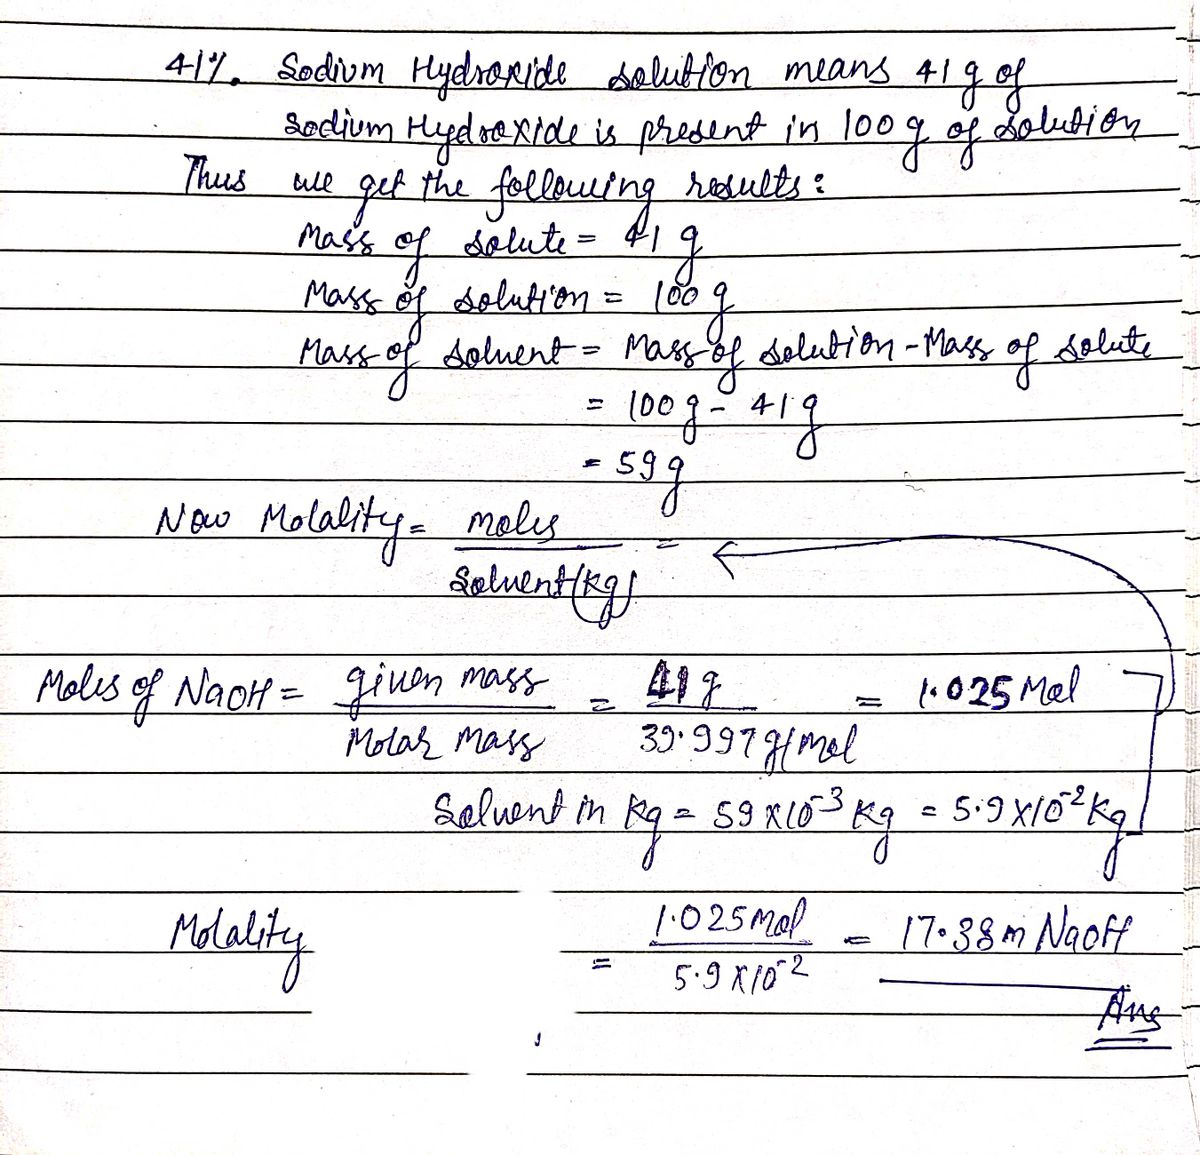 41%. Sodium Hydroxide solution means 41 g of
Sodium Hydroxide is present in 100 g of solution
Thus we get the following results:
Mass of solute = 41 g
Mass of solution = 100 g
Mass of solvent = Mass of solution - Mass of solute
= 100 g - 41 g
= 59 g
Now Molality = moles / Solvent (kg) =
Moles of NaOH = given mass / Molar Mass = 41 g / 39.997 g/mol = 1.025 Mol
Solvent in kg = 59 x 10⁻³ kg = 5.9 x 10⁻² kg
Molality = 1.025 Mol / 5.9 x 10⁻² = 17.38 m NaOH
Ans